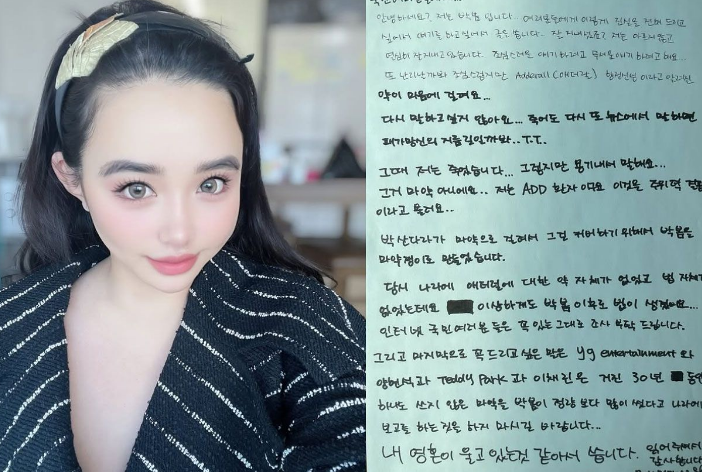 안녕하세요? 저는 박봄 입니다. 여러분들에게 이렇게 진심을 전해 드리고
싶어서 얘기를 하고싶어서 글을 씁니다. 잘 지내셨죠? 저는 아프지않고
열심히 잘지내고있습니다. 조심스러운 얘기 하려고 무서운얘기 하려고 해요..
또 난리날까봐 조심스럽지만 Adderall (애더럴)
약이 마음에 걸려요...
다시 말하고싶지 않아요... 죽어도 다시 또 뉴스에서 말하면
패가망신의 지름길일까봐..T.T.
그때 저는 죽었습니다... 그렇지만 용기내서 말해요...
그거 마약 아니에요.. 저는 ADD 환자 이고요 이것을 주의력 결핍
이라고 불러요..
박산다라가 마약으로 걸려서 그걸 커버하기 위해서 박봄을
마약쟁이로 만들었습니다.
당시 나라에 애더럴에 대한 약 자체가 없었고 법 자체가
없었는데요 이상하게도 박봄 이후로 법이 생겼어요...
인터넷 국민여러분 들은 꼭 있는 그대로 조사 부탁 드립니다.
그리고 마지막으로 꼭 드리고 싶은 말은 yg entertainment 와
양현석과 Teddy Park 과 이채린은 거진 30년 동안
하나도 쓰지 않은 마약을 박봄이 정량 보다 많이 썼다고 나라에
보고하는 것을 하지 마시길 바랍니다...
내 영혼이 울고있는것 같아서 씁니다. 읽어주셔서
감사합니다